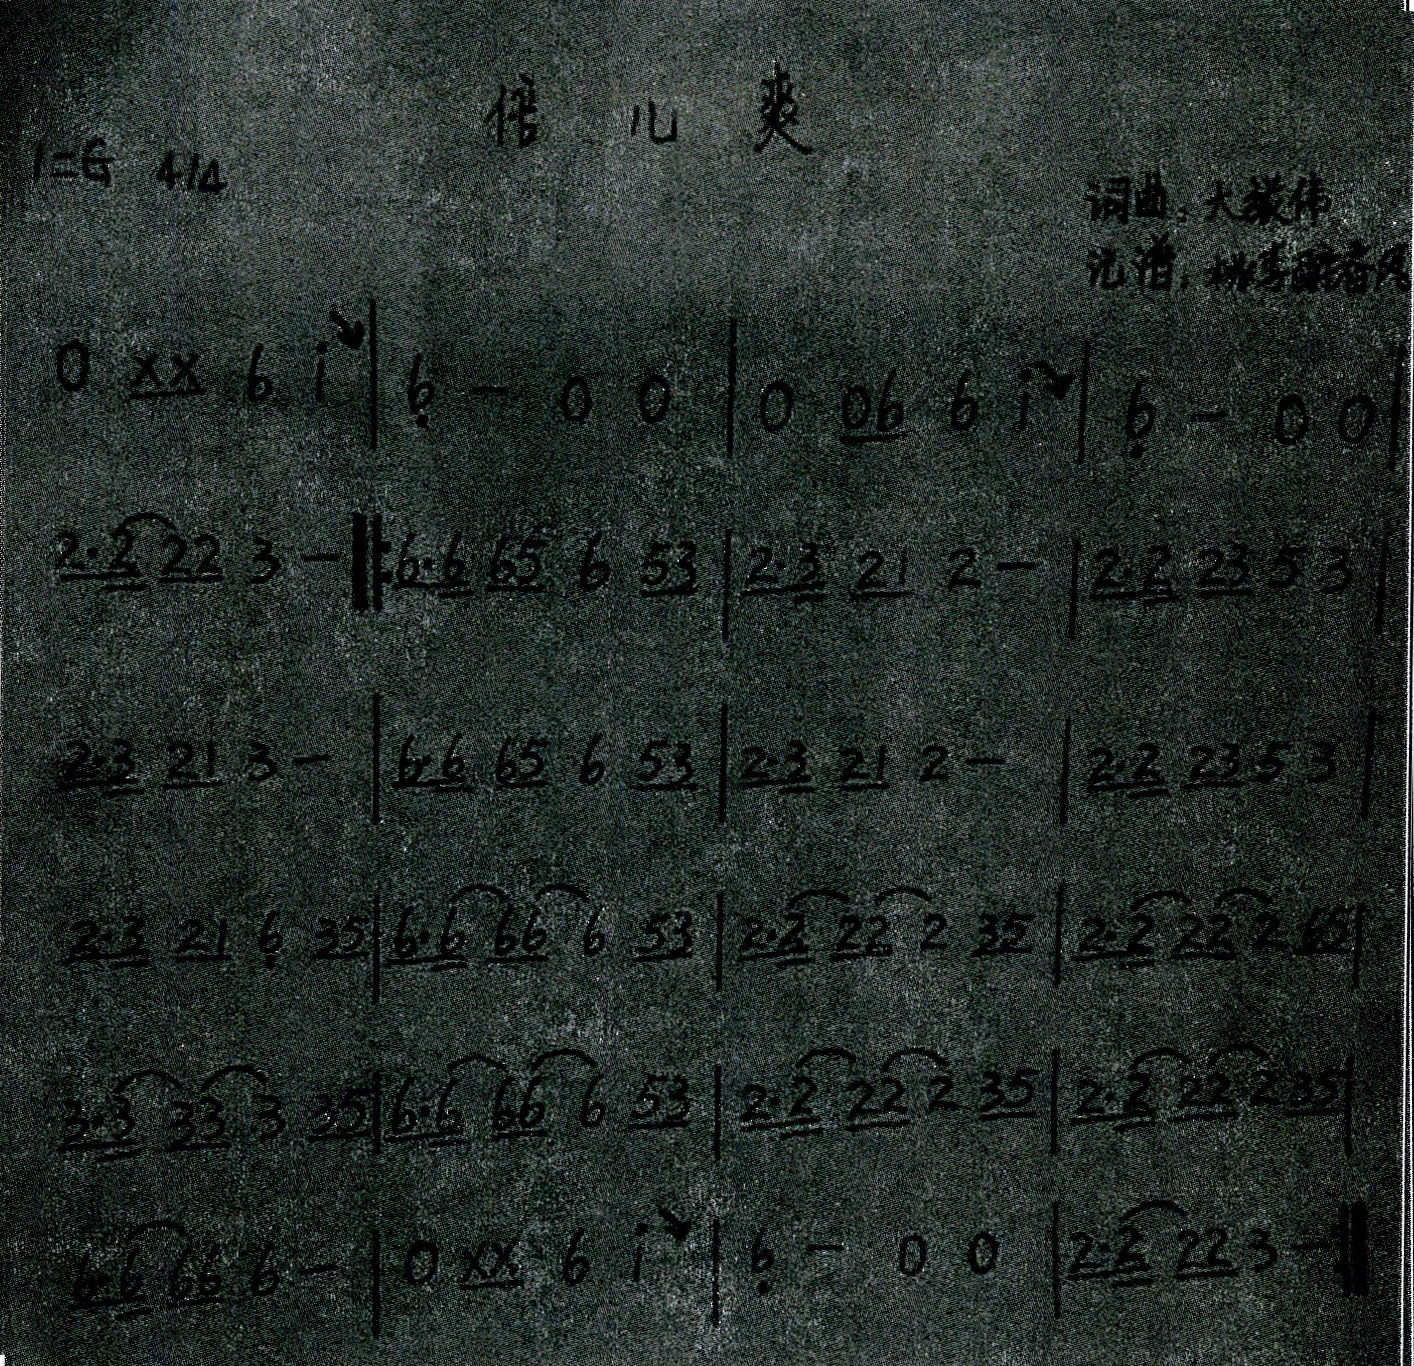 倍儿爽
1=G 4/4
词曲:大张伟
记谱:
0 XX 6 i ↘ | 6̣ - 0 0 | 0 06 6 i ↘ | 6̣ - 0 0 |
2·2 22 3 - ‖: 6·6 65 6 53 | 2·3 21 2 - | 2·2 23 5 3 |
2·3 21 3 - | 6·6 65 6 53 | 2·3 21 2 - | 2·2 23 5 3 |
2·3 21 6̣ 35 | 6·6 66 6 53 | 2·2 22 2 35 | 2·2 22 2 65 |
3·3 33 3 35 | 6·6 66 6 53 | 2·2 22 2 35 | 2·2 22 2 35 |
6·6 66 6 - | 0 XX 6 i ↘ | 6̣ - 0 0 | 2·2 22 3 - :‖